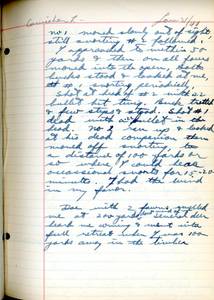 Jan 21/49
no 1 moved slowly out of sight
still snorting & #2 followed.
I approached to within 50
yards & then on all fours
moved into the open. Both
bucks stood & looked at me,
at # snorting periodically.
Shot at buck # 2 with .22
bullet hit lung. Buck trotted
a few steps & stood. Shot #1
dead with a bullet in the
head. No 2 ran up & looked
at his dead companion then
moved off snorting to
a distance of 100 yards or
so where I could hear
occasional snorts for 15-20
minutes. I had the wind
in my favor.
Doe with 2 fawns
me at 200 yards. Several deer
heard me coming & went into
full retreat when I was 100
yards away in the timber